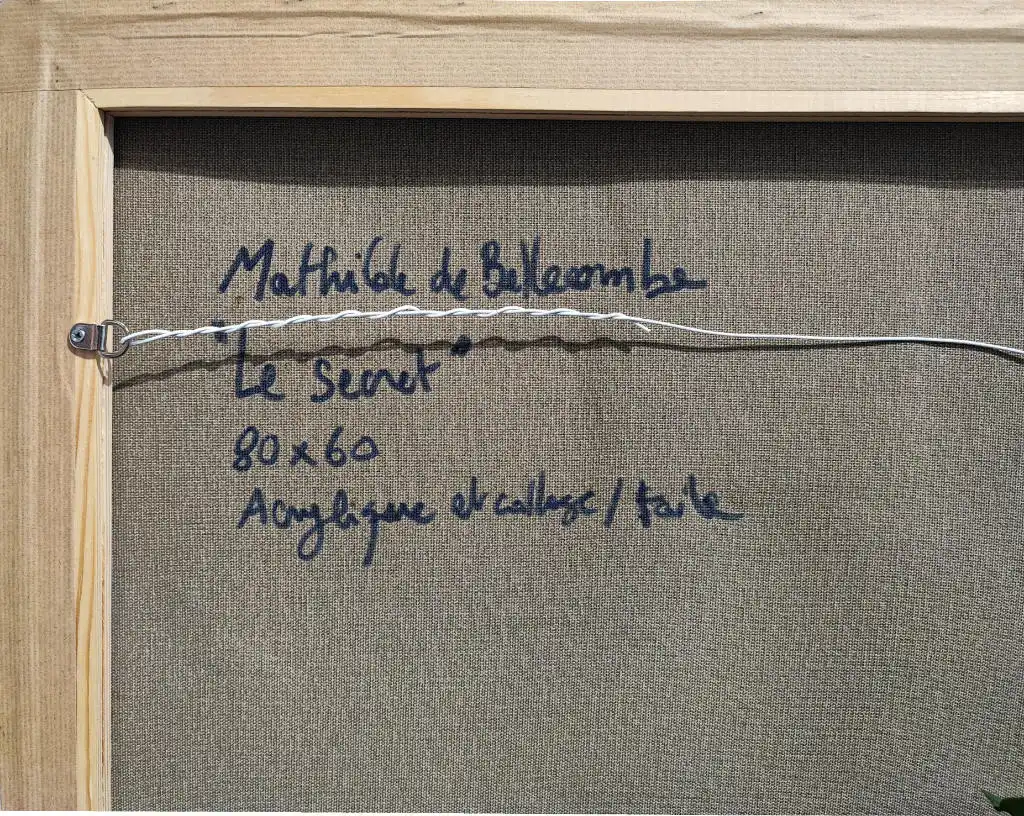 Mathilde de Bellecombe
"Le Secret"
80x60
Acrylique et collage / toile